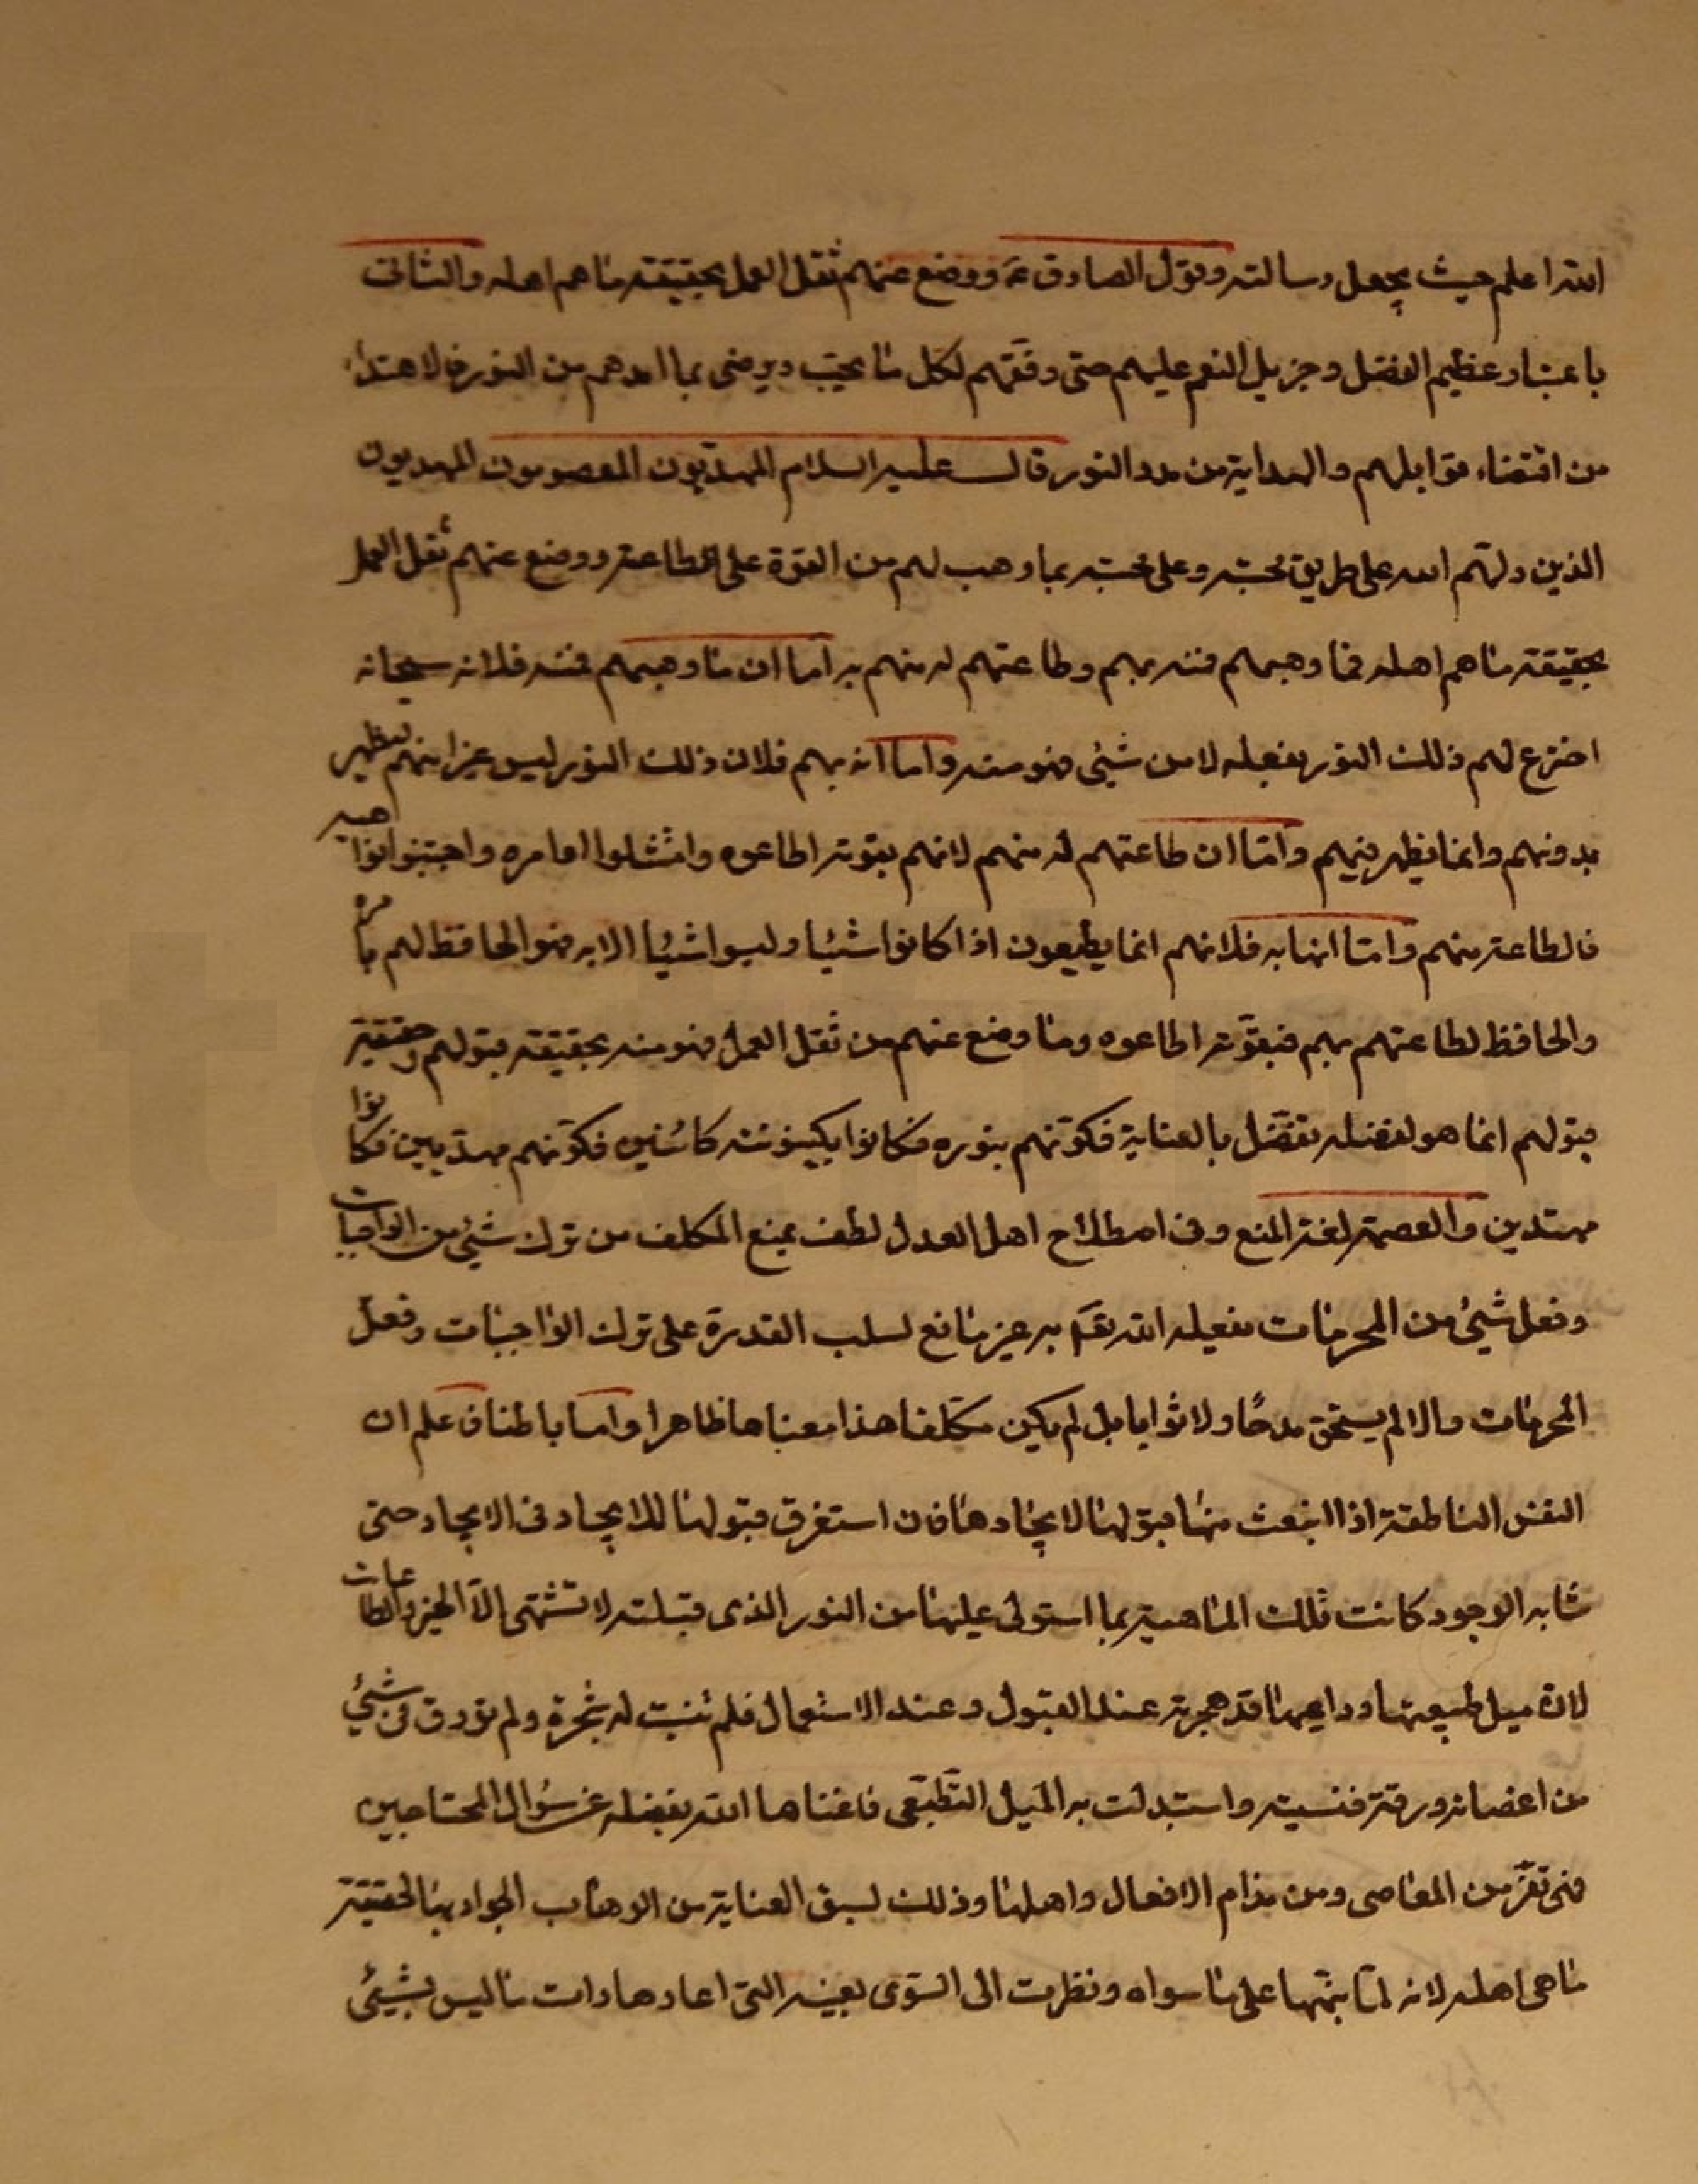 الله اعلم حيث يجعل رسالته وقول الصادق عۤ ووضع عنهم ثقل العمل بحقيقة ما هم اهله والثانى
باعتبار عظيم الفضل وجزيل النعم عليهم حتى وفّقهم لكل ما يحبّ ويرضى بما امدهم من النور فالاهتداء
من اقتضاء قوابلهم والهداية من مدد النور قال عليه السلام المهديّون المعصومون المهديون
الذين دلّهم الله على طريق محبته وعلى محبته بما وهب لهم من القوّة على الطاعة ووضع عنهم ثقل العمل
بحقيقة ما هم اهله فما وهبهم فمنه بهم وطاعتهم له منهم به اما ان ما وهبهم فمنه فلانه سبحانه
اخترع لهم ذلك النور بفعله لا من شئ فهو منه واما انه بهم فلان ذلك النور ليس غيرا منهم ليظهر
بدونهم وانما يظهر فيهم وامّا ان طاعتهم له منهم لانهم بقوته اطاعوه وامتثلوا اوامره واجتنبوا نواهيه
فالطاعة منهم وامّا انها به فلانهم انما يطيعون اذا كانوا شيئا وليسوا شيئا الا به فهو الحافظ لهم بامره
والحافظ لطاعتهم بهم فبقوّته اطاعوه وما وضع عنهم من ثقل العمل فهو منه بحقيقة قبولهم وحقيقة
قبولهم انما هو لفضله تفضّل بالعناية فكوّنهم بنوره فكانوا بكينونته كائنين فكوّنهم مهديين فكانوا
مهتدين والعصمة لغة المنع وفى اصطلاح اهل العدل لطف يمنع المكلف من ترك شئ من الواجبات
وفعل شئ من المحرمات يفعله الله تعۤ به غير مانع لسلب القدرة على ترك الواجبات وفعل
المحرمات والا لم يستحق مدحًا ولا ثوابا بل لم يكن مكلفا هذا معناها ظاهرا واما باطنا فاعلم ان
النفس الناطقة اذا انبعث منها قبولها لايجادها فان استغرق قبولها للايجاد فى الايجاد حتى
شابه الوجود كانت تلك الماهية بما استولى عليها من النور الذى قبلته لا تشتهى الّا الخير والطاعات
لان ميل طبيعتها وداعيها قد هجرته عند القبول وعند الاستعمال فلم تنبت له شجرة ولم تورق فى شئ
من اغصانه ورقة فنسيته واستبدلت به الميل التّطبّعى فاغناها الله بفضله عن سؤال المحتاجين
فهى تفرّ من المعاصى ومن مذام الافعال واهلها وذلك لسبق العناية من الوهاب الجواد بها لحقيقة
ما هى اهله لانه لمّا على ما سواه ونظرت الى السّوى بعينه التى اعادها رات ما ليس بشئ